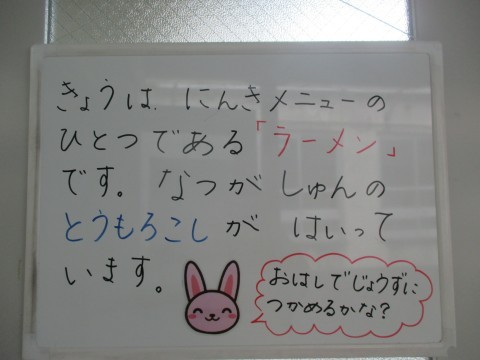 きょうは、にんきメニューの
ひとつである「ラーメン」
です。なつが しゅんの
とうもろこしが はいって
います。
おはしでじょうずに
つかめるかな?